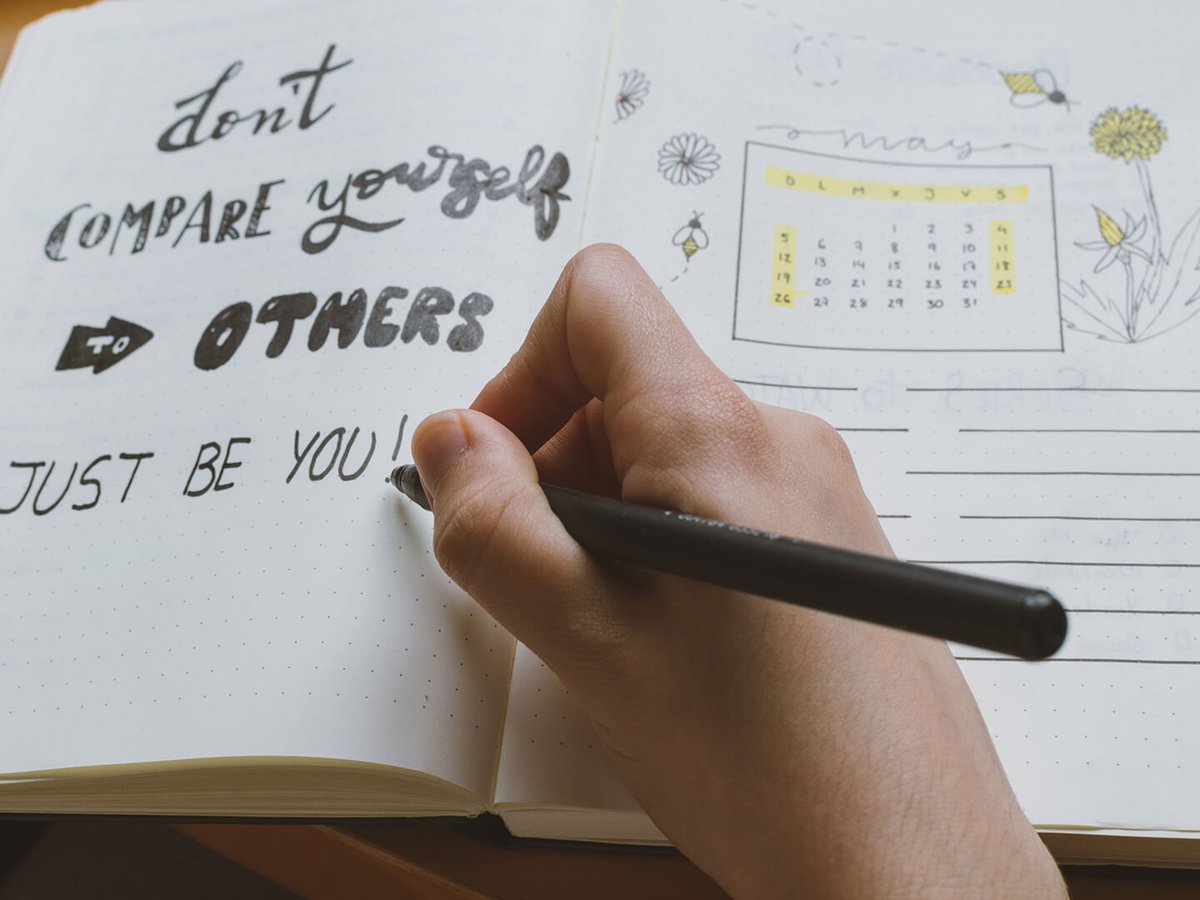 don't
COMPARE yourself
TO OTHERS
JUST BE YOU!
may
D L M X J V S
1 2 3 4
5 6 7 8 9 10 11
12 13 14 15 16 17 18
19 20 21 22 23 24 25
26 27 28 29 30 31